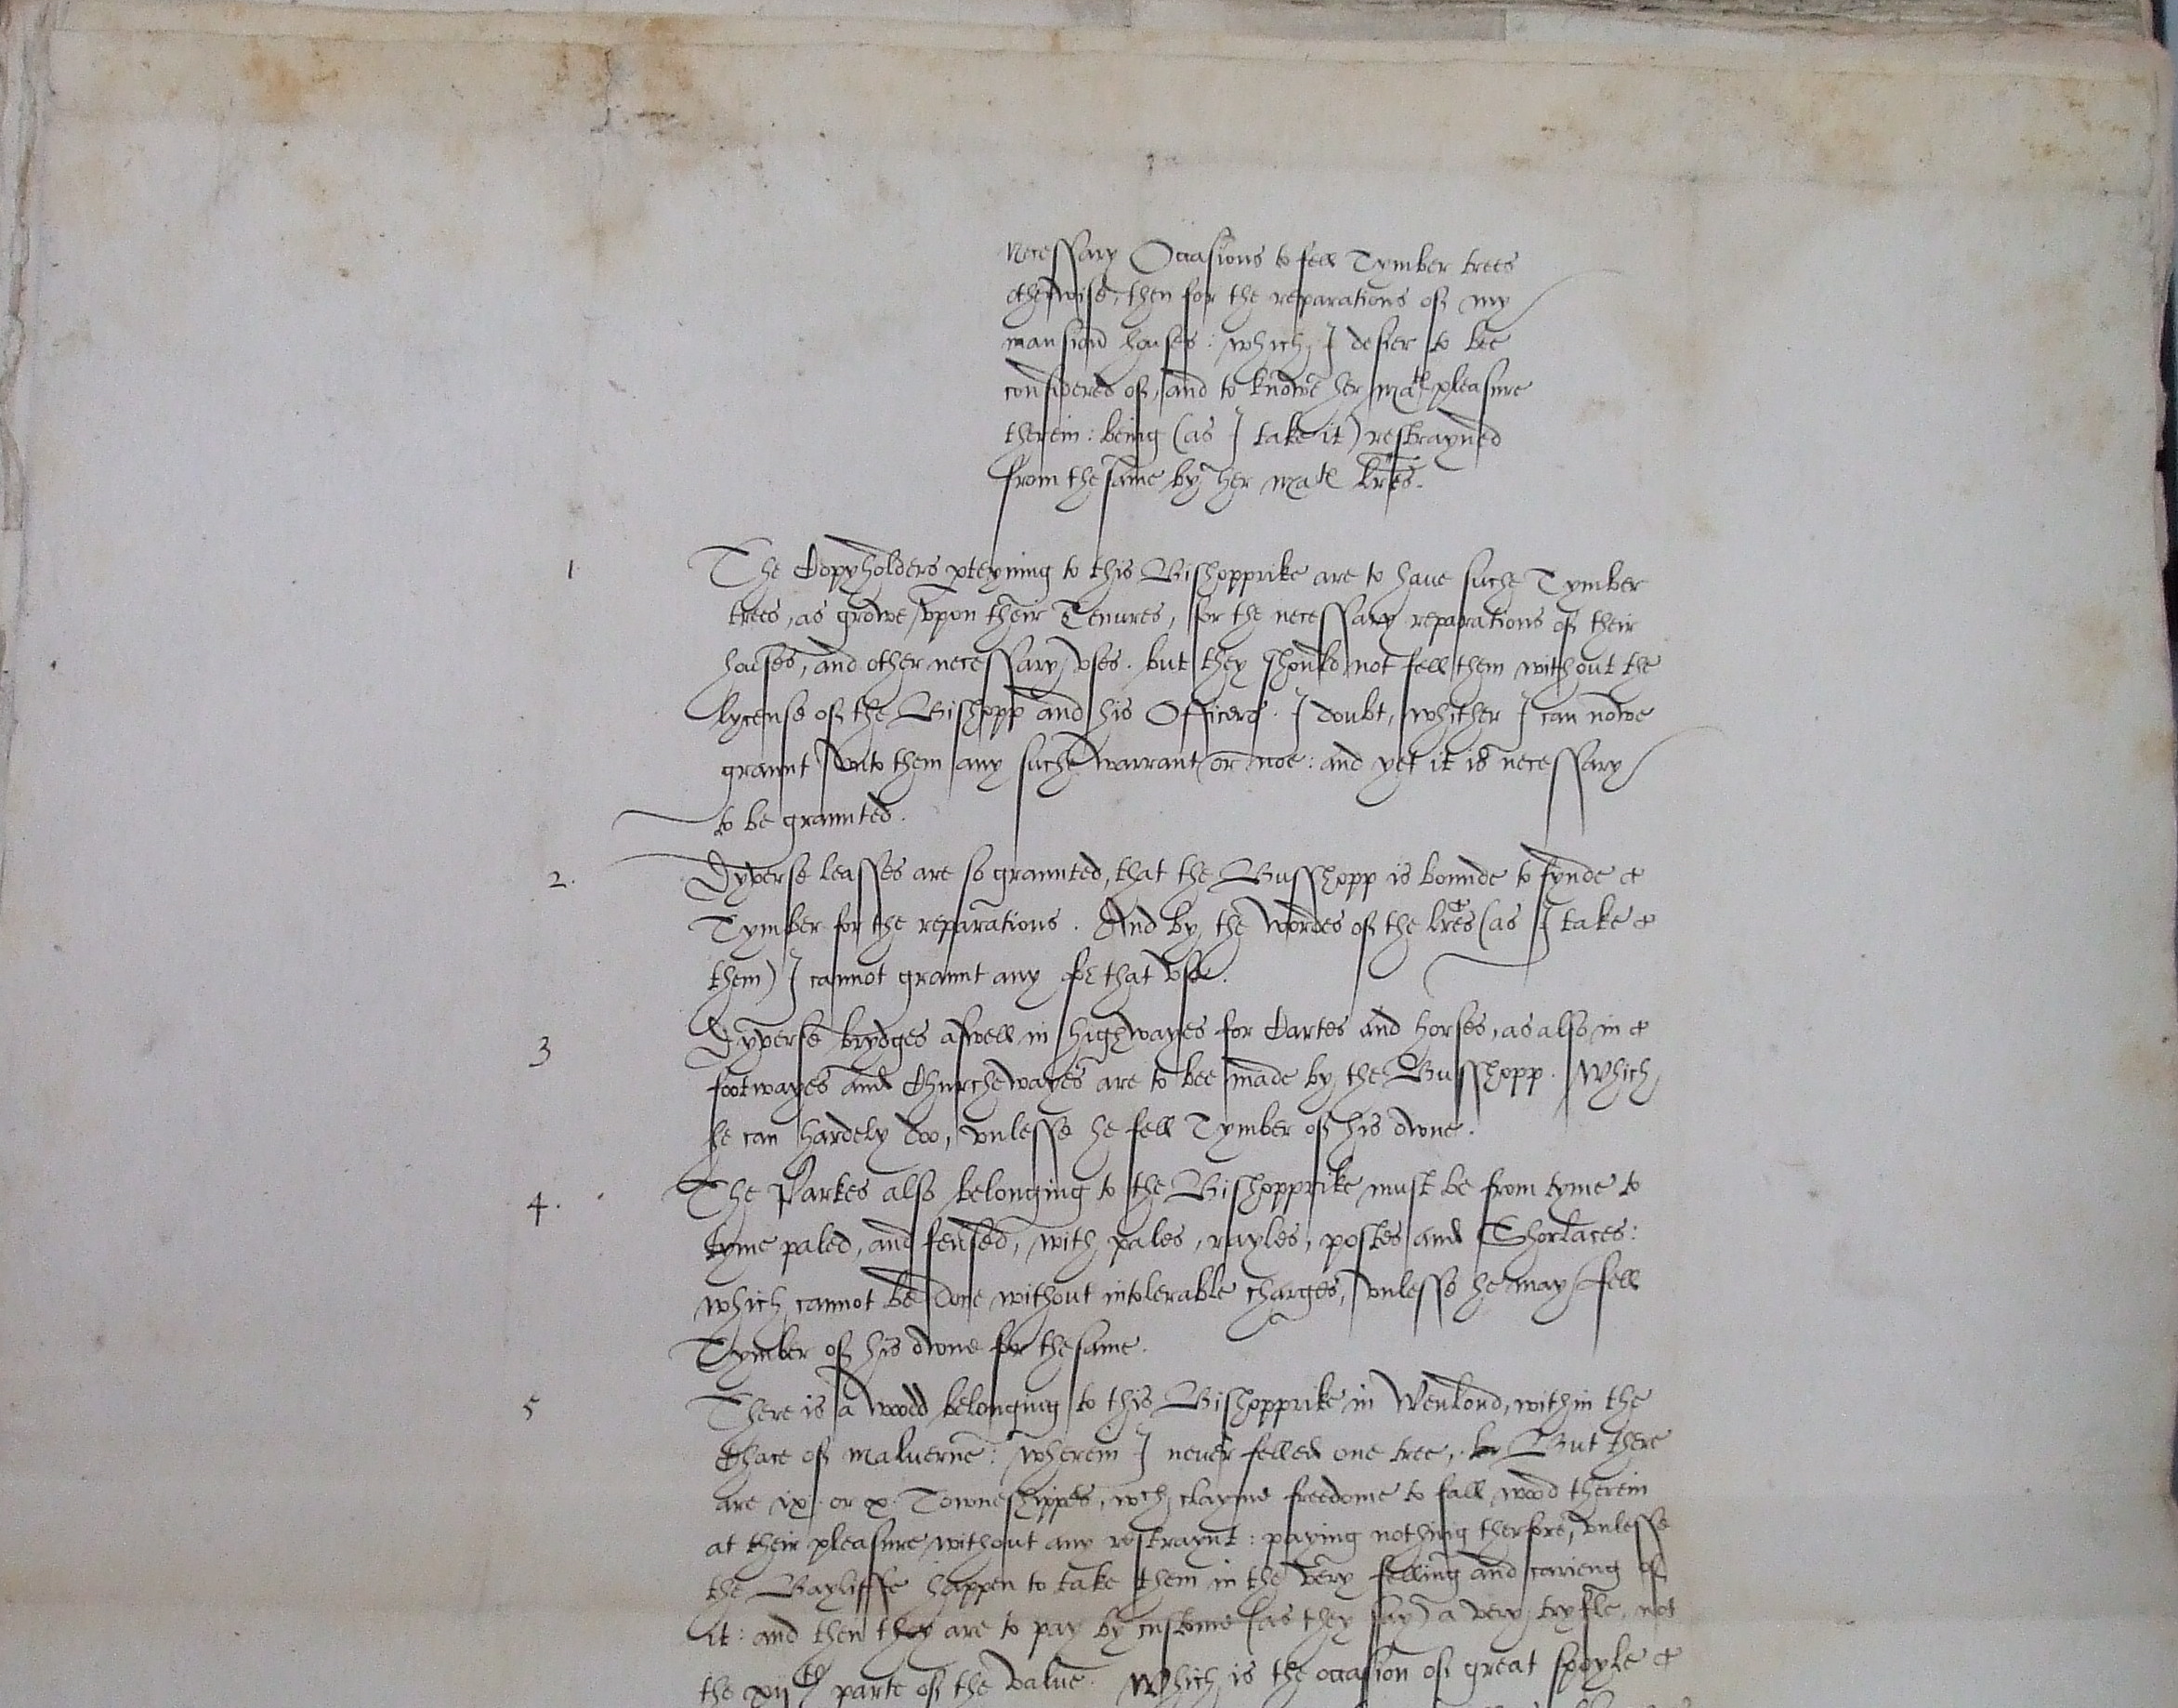 Necessary Occasions to fell Tymber trees
otherwise, then for the reparations of my
mansion houses: which I desier to bee
considered of, and to knowe her Matꝭ pleasure
therein: being (as I take it) restrayned
from the same by her Matꝭ lr̃es.
1. The Copyholders ꝑteyning to this Bishopprike are to haue suche Tymber
trees, as growe vpon their Tenures, for the necessary reparations of their
houses, and other necessary vses. but they should not fell them without the
lycense of the Bishopp and his Officers. I doubt, whither I can nowe
graunt vnto them any suche warrant or noe: and yet it is necessary
to be graunted.
2. Dyverse leasses are so graunted, that the Busshopp is bounde to fynde
Tymber for the reparations. And by the wordes of the lr̃es (as I take
them) I cannot graunt any for that vse.
3 Dyverse brydges aswell in highwayes for Cartes and horses, as also in
footwayes and Churchewayes are to bee made by the Busshopp. Which
he can hardely doo, vnlesse he fell Tymber of his owne.
4. The Parkes also belonging to the Bishopprike must be from tyme to
tyme paled, and fensed, with pales, rayles, postes and Shorlaces:
which cannot be done without intolerable charges, vnlesse he may fell
Tymber of his owne for the same.
5 There is a wood belonging to this Bishopprike in Wenlond, within the
Chace of Maluerne: wherein I never felled one tree, But there
are ix. or x. Towneshippes, wch clayme freedome to fall wood therein
at their pleasure without any restraynt: paying nothing therfore, vnlesse
the Bayliffe happen to take them in the very felling and carieng of
it: and then they are to pay by custome (as they say) a very tryfle, not
the xijth parte of the value. Which is the occasion of great spoyle